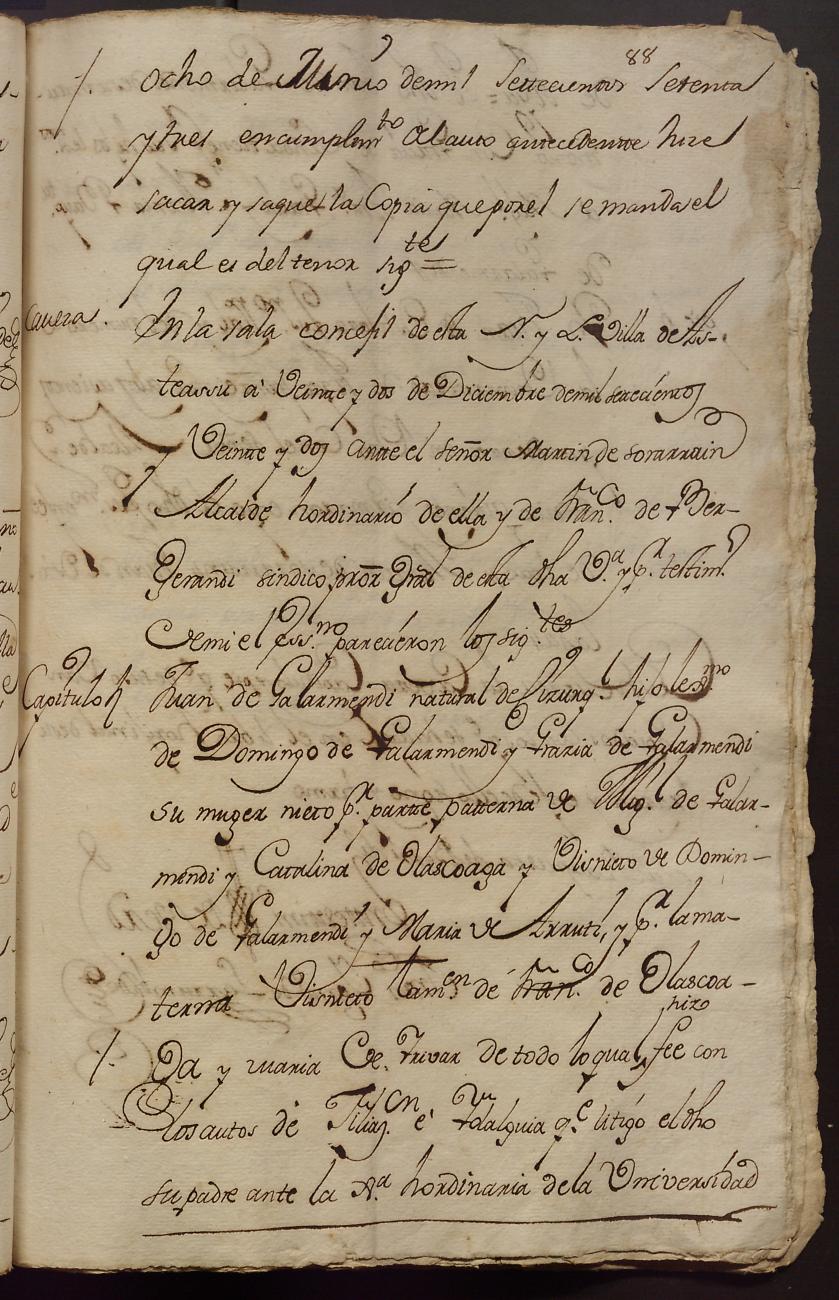 88
ocho de Junio demil Settecientos Setenta
y tres encumplimto Al auto antecedente hize
sacar y saque la Copia queporel se manda el
qual es del tenor sigtes =
Cavera.
En la sala concejil de esta N. y L. Villa de As-
teassu à Veinte y dos de Diciembre demil setecientos
y Veinte y dos ante el señor Martin de sorarrain
Alcalde hordinario de ella y de Franco. de Ber-
gerandi sindico pror Gral de esta dha Va. y pr. testim.
de mi el Essno parecieron los sigtes
Capitulo
Juan de Galarmendi natural de Cizurql. hijo lexmo
de Domingo de Galarmendi y Graria de Galarmendi
su muger nieto pr. parte patterna de Migl. de Galar-
mendi y Catalina de Olascoaga y Visnieto de Domin-
go de Galarmendi y Maria de Arruti, y pr. la ma-
terna Visnieto tamen de Franco. de Olascoa-
ga y maria de Yrivar de todo lo qual hizo fee con
los autos de Filiaon. è Ydalguia qe. litigó el dho
su padre ante la Jª. hordinaria de la Universidad